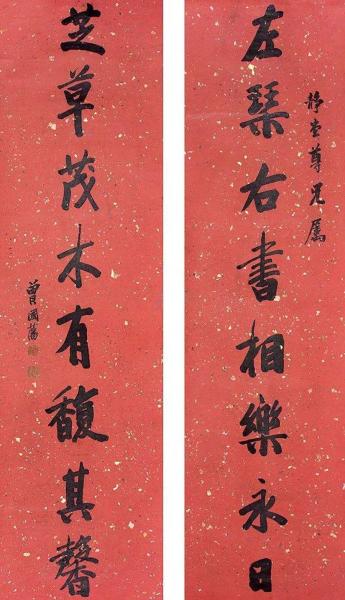 静土尊兄属
左琴右書相樂永日
芝草茂木有馥其馨
曾國藩